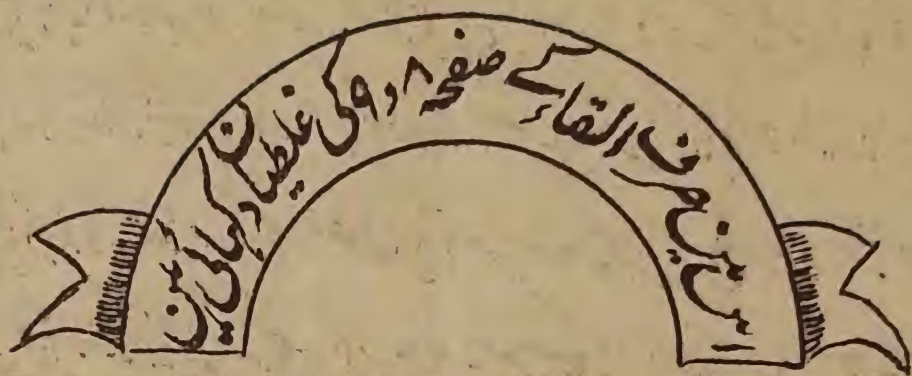 اس میں صرف القاء کے صفحہ ۸ و ۹ کی غلطیاں دکھائی گئیں